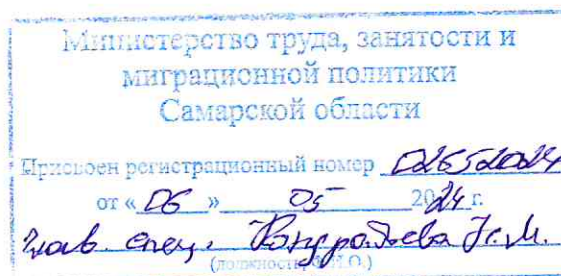 Министерство труда, занятости и
миграционной политики
Самарской области
Присвоен регистрационный номер 02652024
от « 06 » 05 2024 г.
Глав. спец. Кондратьева
(должность, Ф.И.О.)